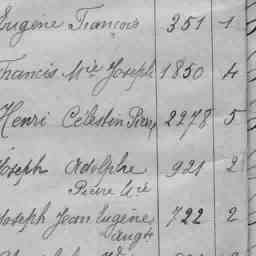 Eugène François 351 1
Francis Mie Joseph 1850 4
Henri Célestin Pierre 2278 5
Joseph Adolphe 921 2
Pierre Mie
Joseph Jean Eugène 722 2
Augte